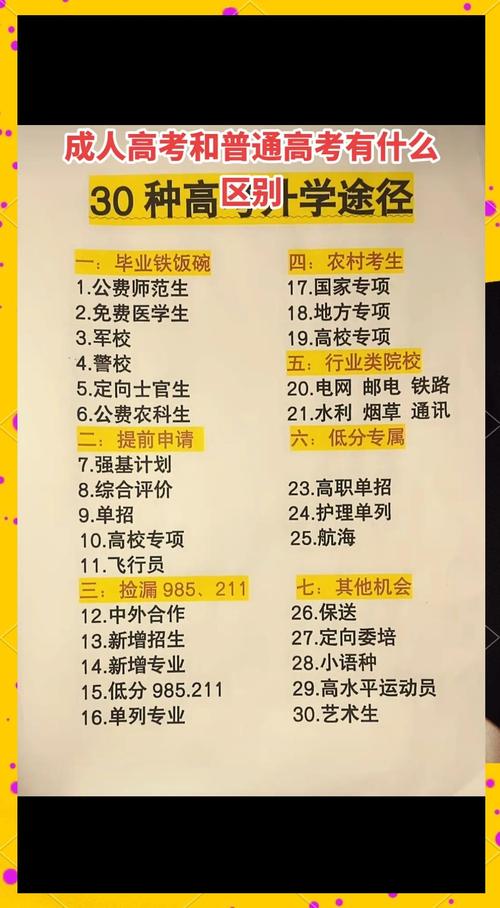 成人高考和普通高考有什么
区别
30 种高考升学途径
一：毕业铁饭碗
1.公费师范生
2.免费医学生
3.军校
4.警校
5.定向士官生
6.公费农科生
二：提前申请
7.强基计划
8.综合评价
9.单招
10.高校专项
11.飞行员
三：捡漏 985、211
12.中外合作
13.新增招生
14.新增专业
15.低分 985.211
16.单列专业
四：农村考生
17.国家专项
18.地方专项
19.高校专项
五：行业类院校
20.电网 邮电 铁路
21.水利 烟草 通讯
六：低分专属
23.高职单招
24.护理单列
25.航海
七：其他机会
26.保送
27.定向委培
28.小语种
29.高水平运动员
30.艺术生